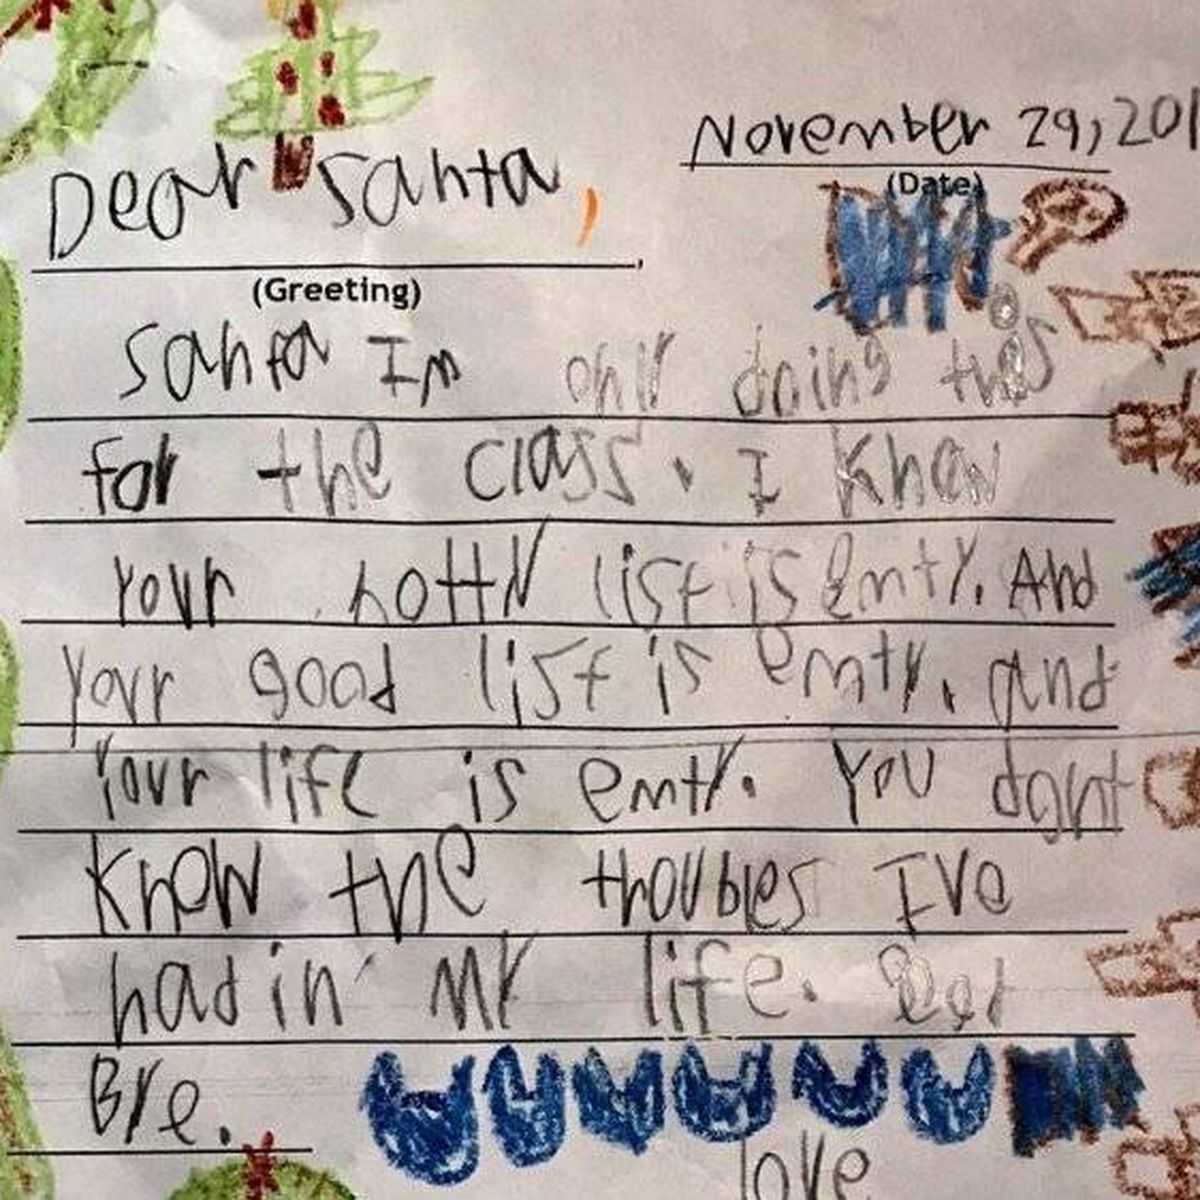 November 29, 201
(Date)
Dear Santa,
(Greeting)
Santa Im only doing this
for the class. I Know
Your notty list is emty. And
Your good list is emty. and
Your life is emty. You dont
Know the thoubles Ive
had in my life. Good
Bye.
love